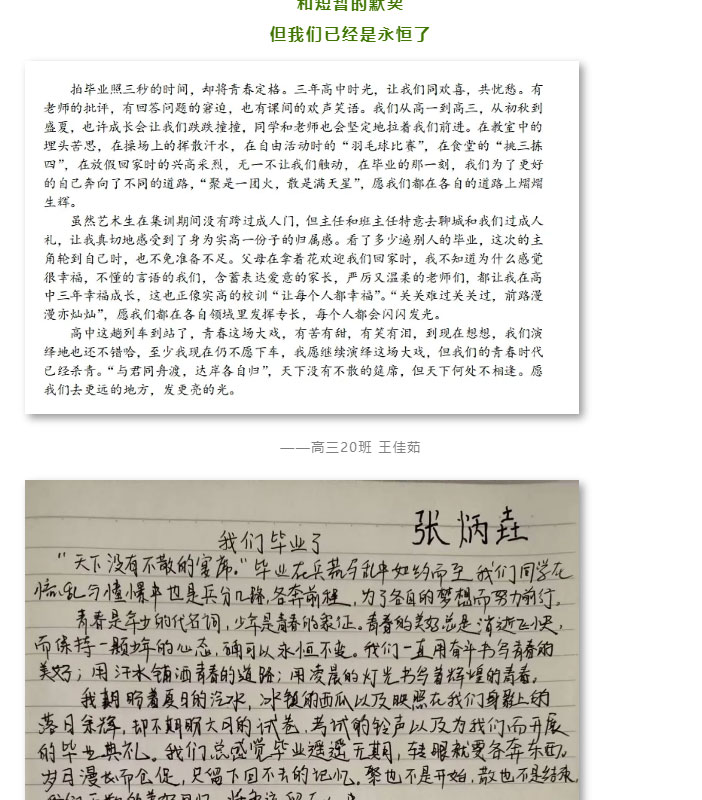 和短暂的默契
但我们已经是永恒了
拍毕业照三秒的时间，却将青春定格。三年高中时光，让我们同欢喜，共忧愁。有
老师的批评，有回答问题的窘迫，也有课间的欢声笑语。我们从高一到高三，从初秋到
盛夏，也许成长会让我们跌跌撞撞，同学和老师也会坚定地拉着我们前进。在教室中的
埋头苦思，在操场上的挥散汗水，在自由活动时的“羽毛球比赛”，在食堂的“挑三拣
四”，在放假回家时的兴高采烈，无一不让我们触动，在毕业的那一刻，我们为了更好
的自己奔向了不同的道路，“聚是一团火，散是满天星”，愿我们都在各自的道路上熠熠
生辉。
虽然艺术生在集训期间没有跨过成人门，但主任和班主任特意去聊城和我们过成人
礼，让我真切地感受到了身为实高一份子的归属感。看了多少遍别人的毕业，这次的主
角轮到自己时，也不免准备不足。父母在拿着花欢迎我们回家时，我不知道为什么感觉
很幸福，不懂的言语的我们，含蓄表达爱意的家长，严厉又温柔的老师们，都让我在高
中三年幸福成长，这也正像实高的校训“让每个人都幸福”。“关关难过关关过，前路漫
漫亦灿灿”，愿我们都在各自领域里发挥专长，每个人都会闪闪发光。
高中这趟列车到站了，青春这场大戏，有苦有甜，有笑有泪，到现在想想，我们演
绎地也还不错哈，至少我现在仍不愿下车，我愿继续演绎这场大戏，但我们的青春时代
已经杀青。“与君同舟渡，达岸各自归”，天下没有不散的筵席，但天下何处不相逢。愿
我们去更远的地方，发更亮的光。
——高三20班 王佳茹
张炳垚
我们毕业了
“天下没有不散的宴席。”毕业在兵荒马乱中如约而至，我们同学在
慌乱与憧憬中也是兵分几路，各奔前程，为了各自的梦想而努力前行。
青春是年少的代名词，少年是青春的象征。青春的美好总是消逝飞快，
而保持一颗少年的心态，确可以永恒不变。我们一直用奋斗书写青春的
美好；用汗水铺洒青春的道路；用凌晨的灯光书写着辉煌的青春。
我期盼着夏日的汽水，冰镇的西瓜以及映照在我们身影上的
落日余辉，却不期盼六月的试卷，考试的铃声以及为我们而开展
的毕业典礼。我们总感觉毕业遥遥无期，转眼就要各奔东西。
岁月漫长而仓促，只留下回不去的记忆。聚也不是开始，散也不是结束，